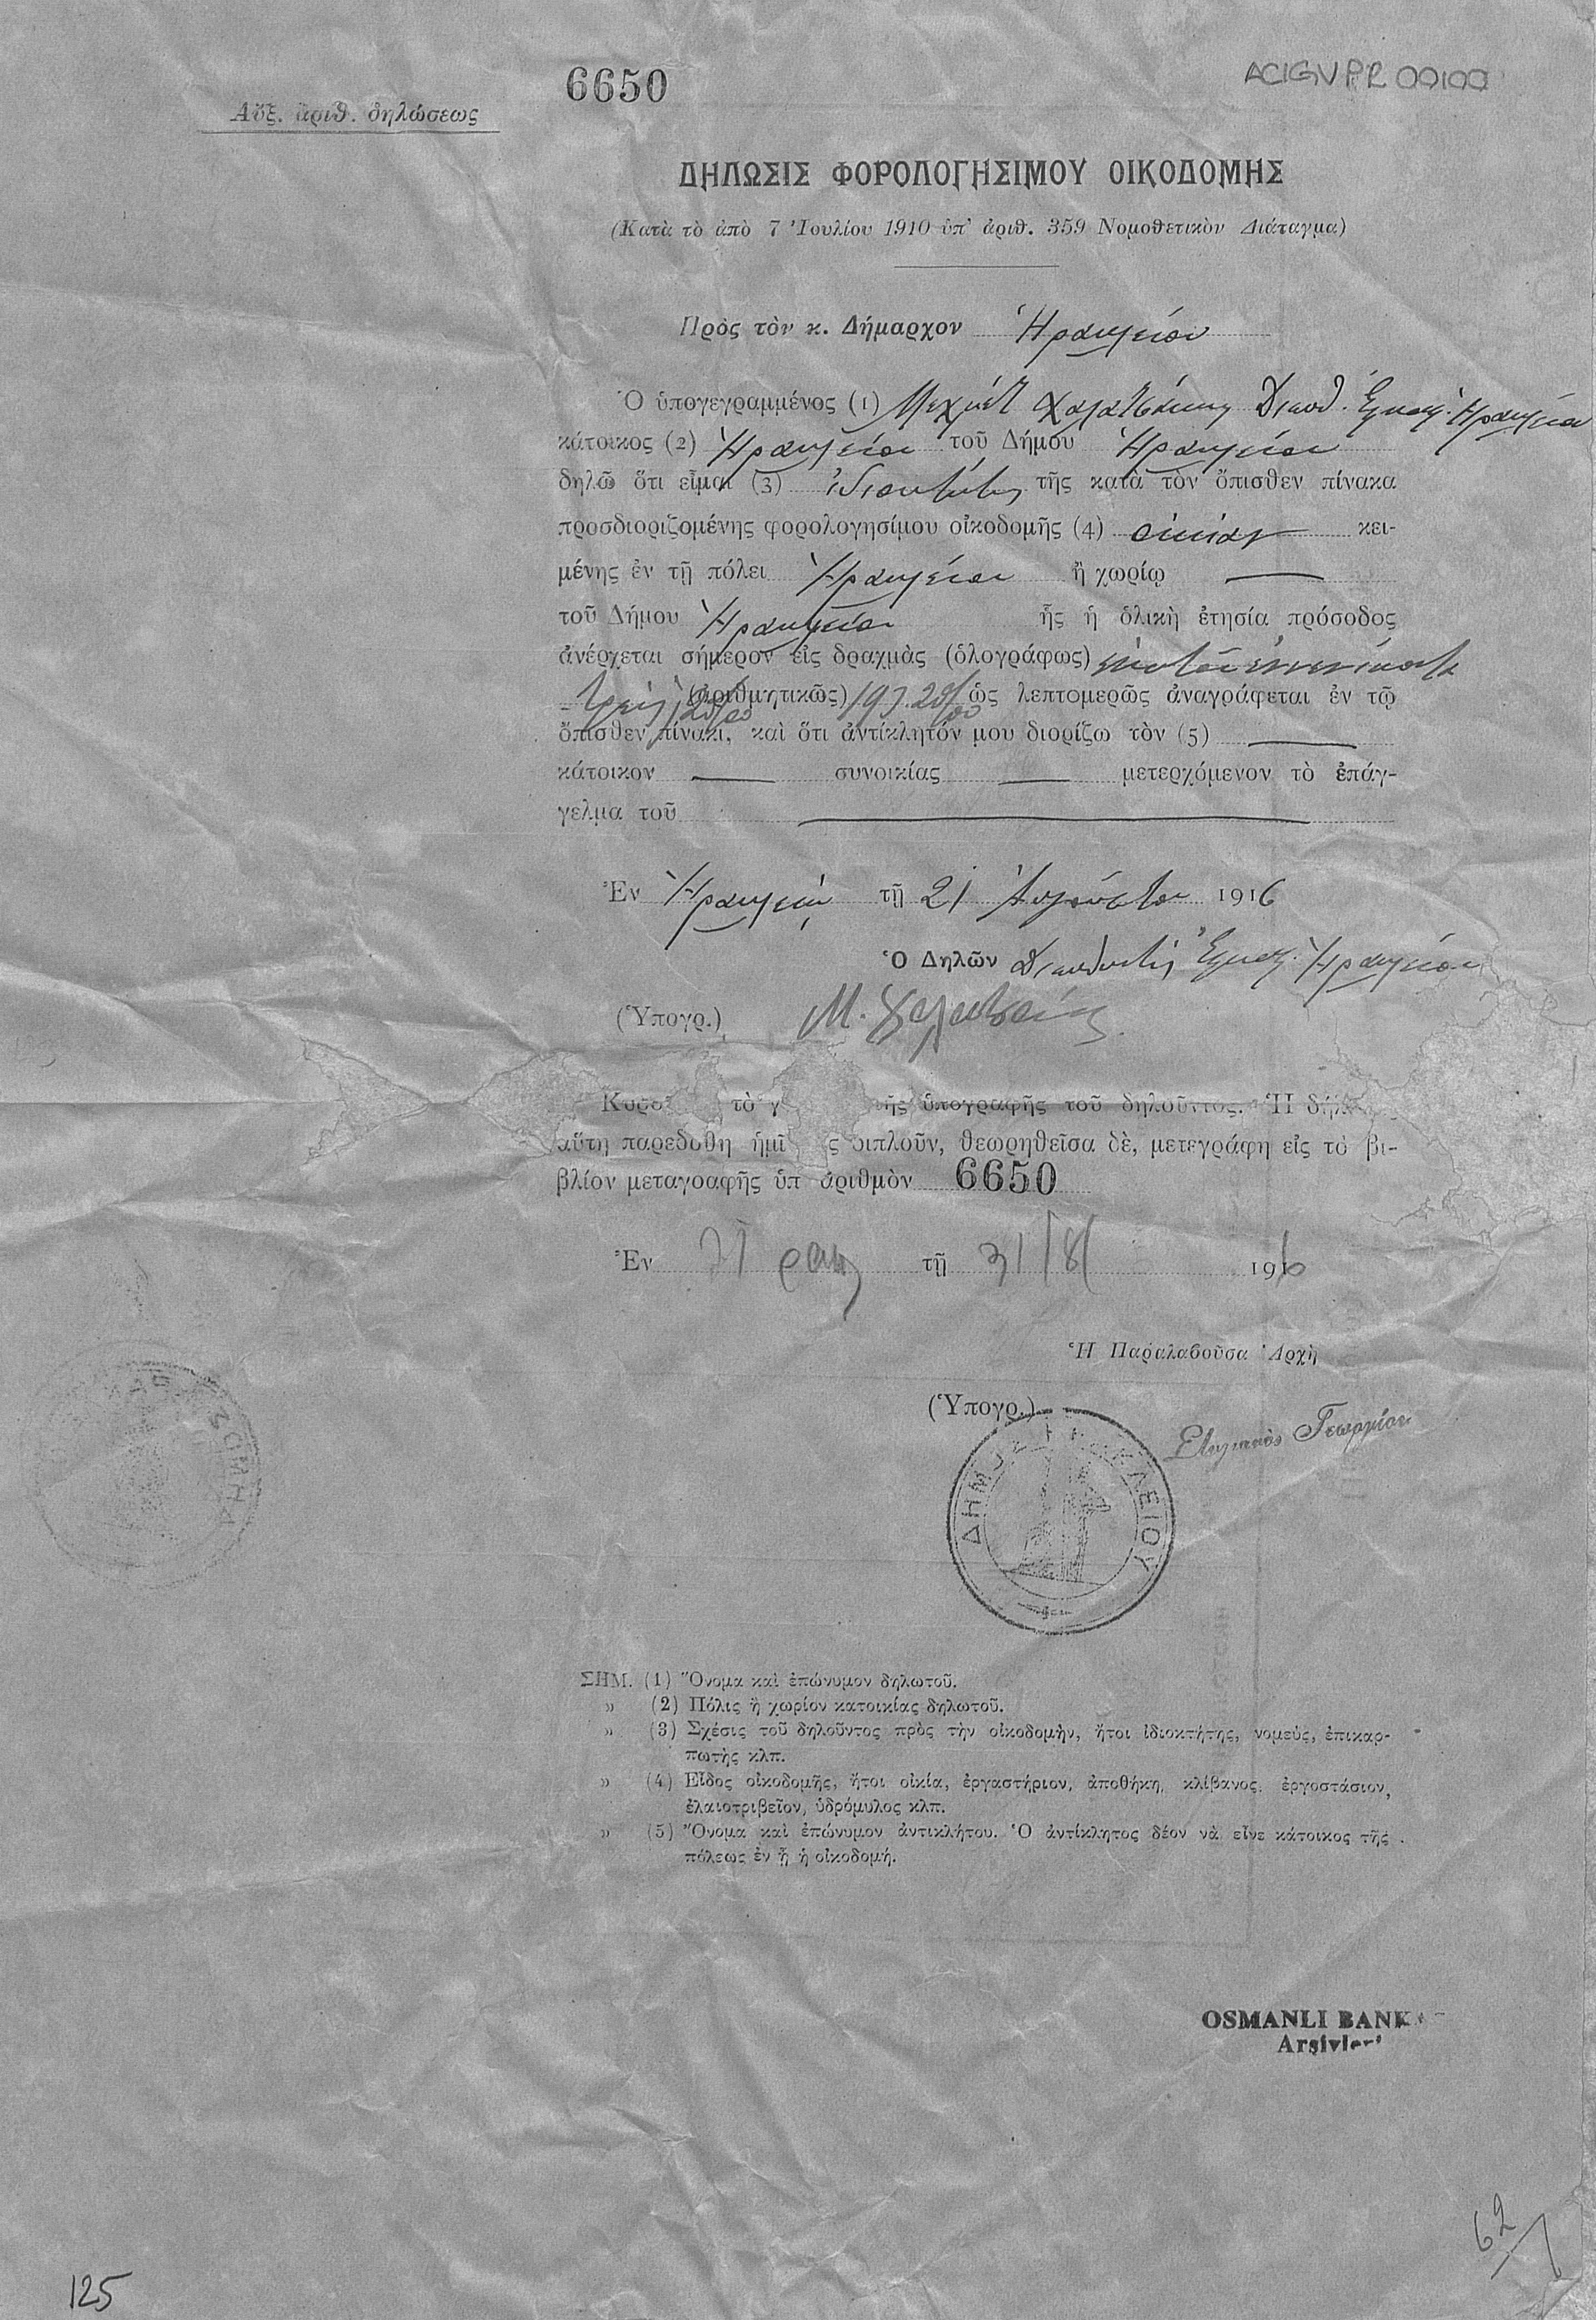 6650
ACIGVPR 00100
Αὔξ. ἀριθ. δηλώσεως
ΔΗΛΩΣΙΣ ΦΟΡΟΛΟΓΗΣΙΜΟΥ ΟΙΚΟΔΟΜΗΣ
(Κατὰ τὸ ἀπὸ 7 Ἰουλίου 1910 ὑπ' ἀριθ. 359 Νομοθετικὸν Διάταγμα)
Πρὸς τὸν κ. Δήμαρχον Ἡρακλείου
Ὁ ὑπογεγραμμένος (1) Μεχμὲτ Χαλατσάκης Διευθ. Ἡρακλείου
κάτοικος (2) Ἡρακλείου τοῦ Δήμου Ἡρακλείου
δηλῶ ὅτι εἶμαι (3) ἰδιοκτήτης τῆς κατὰ τὸν ὄπισθεν πίνακα
προσδιοριζομένης φορολογησίμου οἰκοδομῆς (4) οἰκίας κει-
μένης ἐν τῇ πόλει Ἡρακλείου ἢ χωρίῳ —
τοῦ Δήμου Ἡρακλείου ἧς ἡ ὁλικὴ ἐτησία πρόσοδος
ἀνέρχεται σήμερον εἰς δραχμὰς (ὁλογράφως) ἑκατὸν ἐννενήκοντα
τρεῖς 20/00 (ἀριθμητικῶς) 193.20/00 ὡς λεπτομερῶς ἀναγράφεται ἐν τῷ
ὄπισθεν πίνακι, καὶ ὅτι ἀντίκλητόν μου διορίζω τὸν (5) —
κάτοικον — συνοικίας — μετερχόμενον τὸ ἐπάγ-
γελμα τοῦ —
Ἐν Ἡρακλείῳ τῇ 21 Αὐγούστου 1916
Ὁ Δηλῶν Διευθυντὴς Ἡρακλείου
(Ὑπογρ.) Μ. Χαλατσάκης
τὸ τῆς ὑπογραφῆς τοῦ δηλοῦντος. Ἡ
αὕτη παρεδόθη ἡμῖ ς διπλοῦν, θεωρηθεῖσα δὲ, μετεγράφη εἰς τὸ βι-
βλίον μεταγραφῆς ὑπ ἀριθμὸν 6650
Ἐν Ἡρακ τῇ 31/8/ 1916
Ἡ Παραλαβοῦσα Ἀρχὴ
(Ὑπογρ.)
Στυλιανὸς Γεωργίου
ΔΗΜΟΣ ΗΡΑΚΛΕΙΟΥ
ΣΗΜ. (1) Ὄνομα καὶ ἐπώνυμον δηλωτοῦ.
» (2) Πόλις ἢ χωρίον κατοικίας δηλωτοῦ.
» (3) Σχέσις τοῦ δηλοῦντος πρὸς τὴν οἰκοδομὴν, ἤτοι ἰδιοκτήτης, νομεὺς, ἐπικαρ-
πωτὴς κλπ.
» (4) Εἶδος οἰκοδομῆς, ἤτοι οἰκία, ἐργαστήριον, ἀποθήκη, κλίβανος, ἐργοστάσιον,
ἐλαιοτριβεῖον, ὑδρόμυλος κλπ.
» (5) Ὄνομα καὶ ἐπώνυμον ἀντικλήτου. Ὁ ἀντίκλητος δέον νὰ εἶνε κάτοικος τῆς
πόλεως ἐν ᾗ ἡ οἰκοδομή.
OSMANLI BANK
Arşivleri
62
125